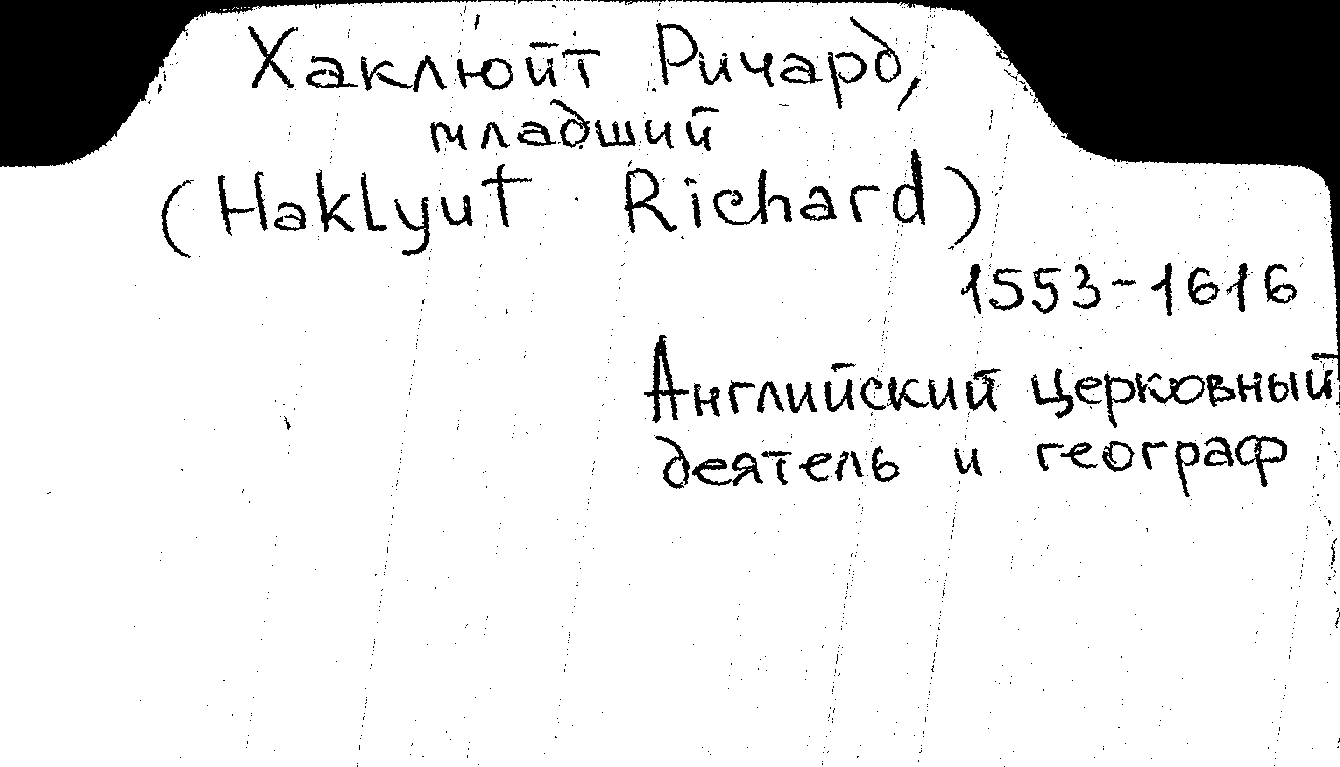 Хаклюйт Ричард,
младший
(Haklyut Richard)
1553-1616
Английский церковный
деятель и географ